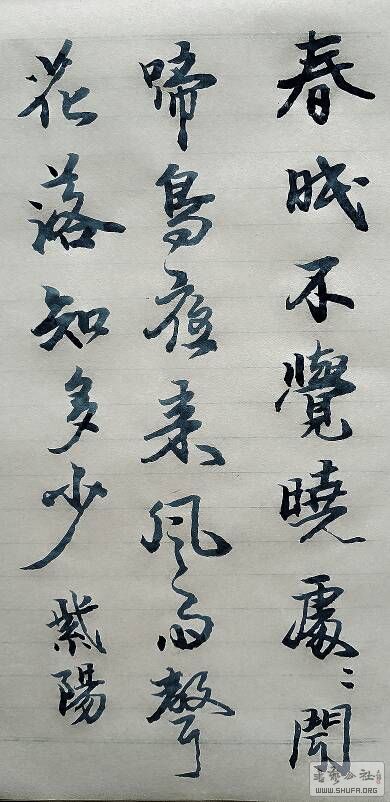 春眠不覺曉處〻聞
啼鳥夜来风雨聲
花落知多少 紫陽
书艺公社
WWW.SHUFA.ORG